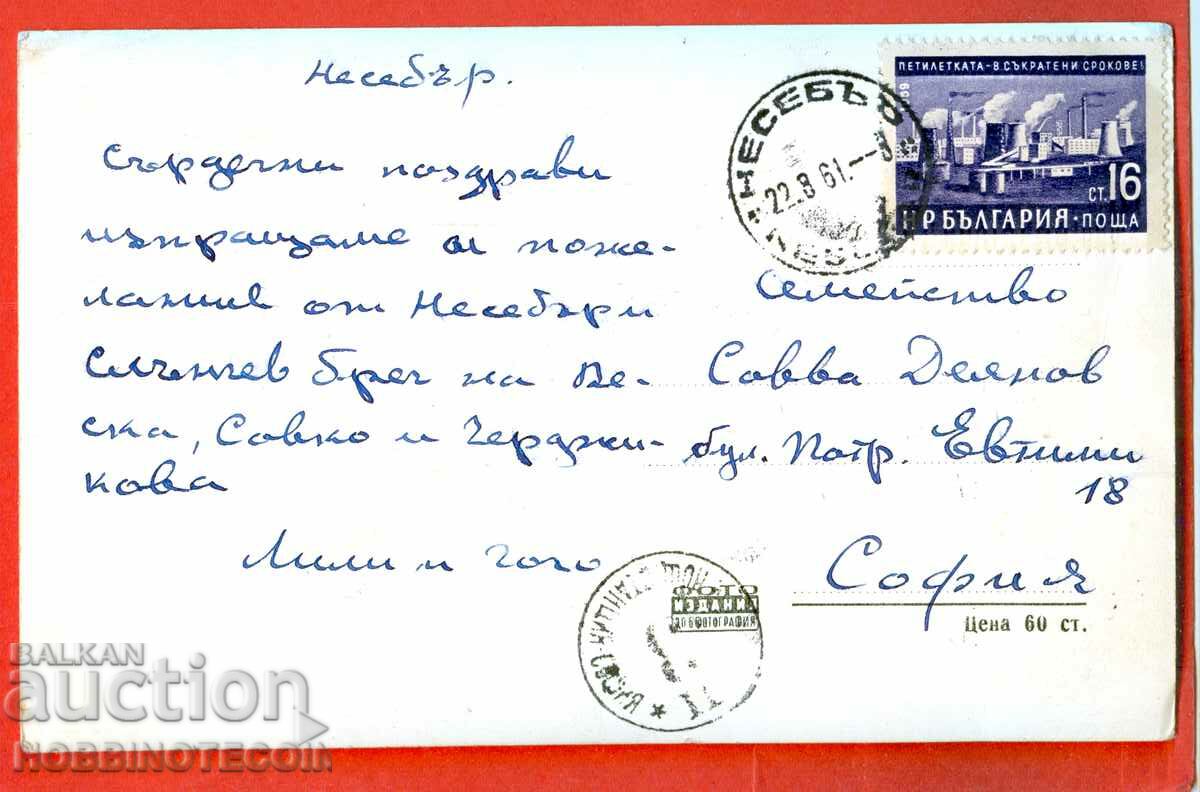 Несебър.
Сърдечни поздрави
изпращаме и поже-
лания от Несебър и
Слънчев бряг на Ве-
ска, Савко и Черджи-
кова
Лили и Гого
ПЕТИЛЕТКАТА-В СЪКРАТЕНИ СРОКОВЕ!
1959
СТ. 16
НР БЪЛГАРИЯ · ПОЩА
НЕСЕБЪР
22.8.61.--
Семейство
Савва Деянов
бул. Патр. Евтими
18
София
Цена 60 ст.
ФОТО
ИЗДАНИЯ
BALKAN
auction
HOBBINOTECOIN